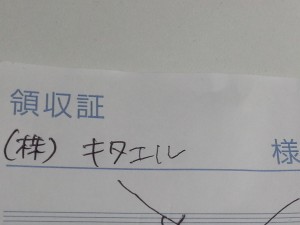 領収証
(株) キタエル 様